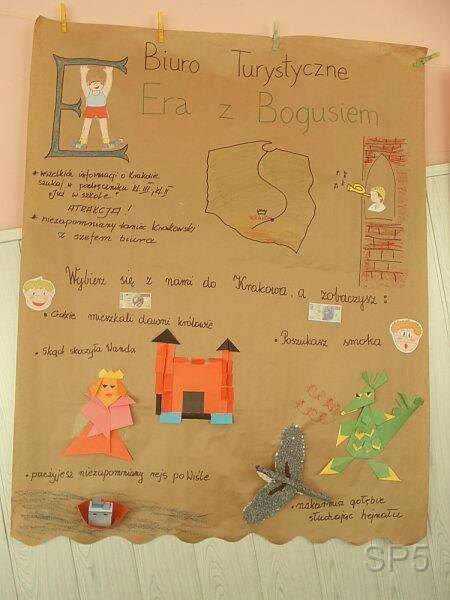 E
Biuro Turystyczne
Era z Bogusiem
* wszelkich informacji o Krakowie
szukaj w podręczniku kl. III i kl. II
• Już w szkole
ATRAKCJA!
* niezapomniany taniec Krakowski
z szefem biura
KRAKÓW
Wybierz się z nami do Krakowa, a zobaczysz:
• Gdzie mieszkali dawni królowie
• Poszukasz smoka
• Skąd skoczyła Wanda
• przeżyjesz niezapomniany rejs po Wiśle
• nakarmisz gołębie
słuchając hejnału
SP5